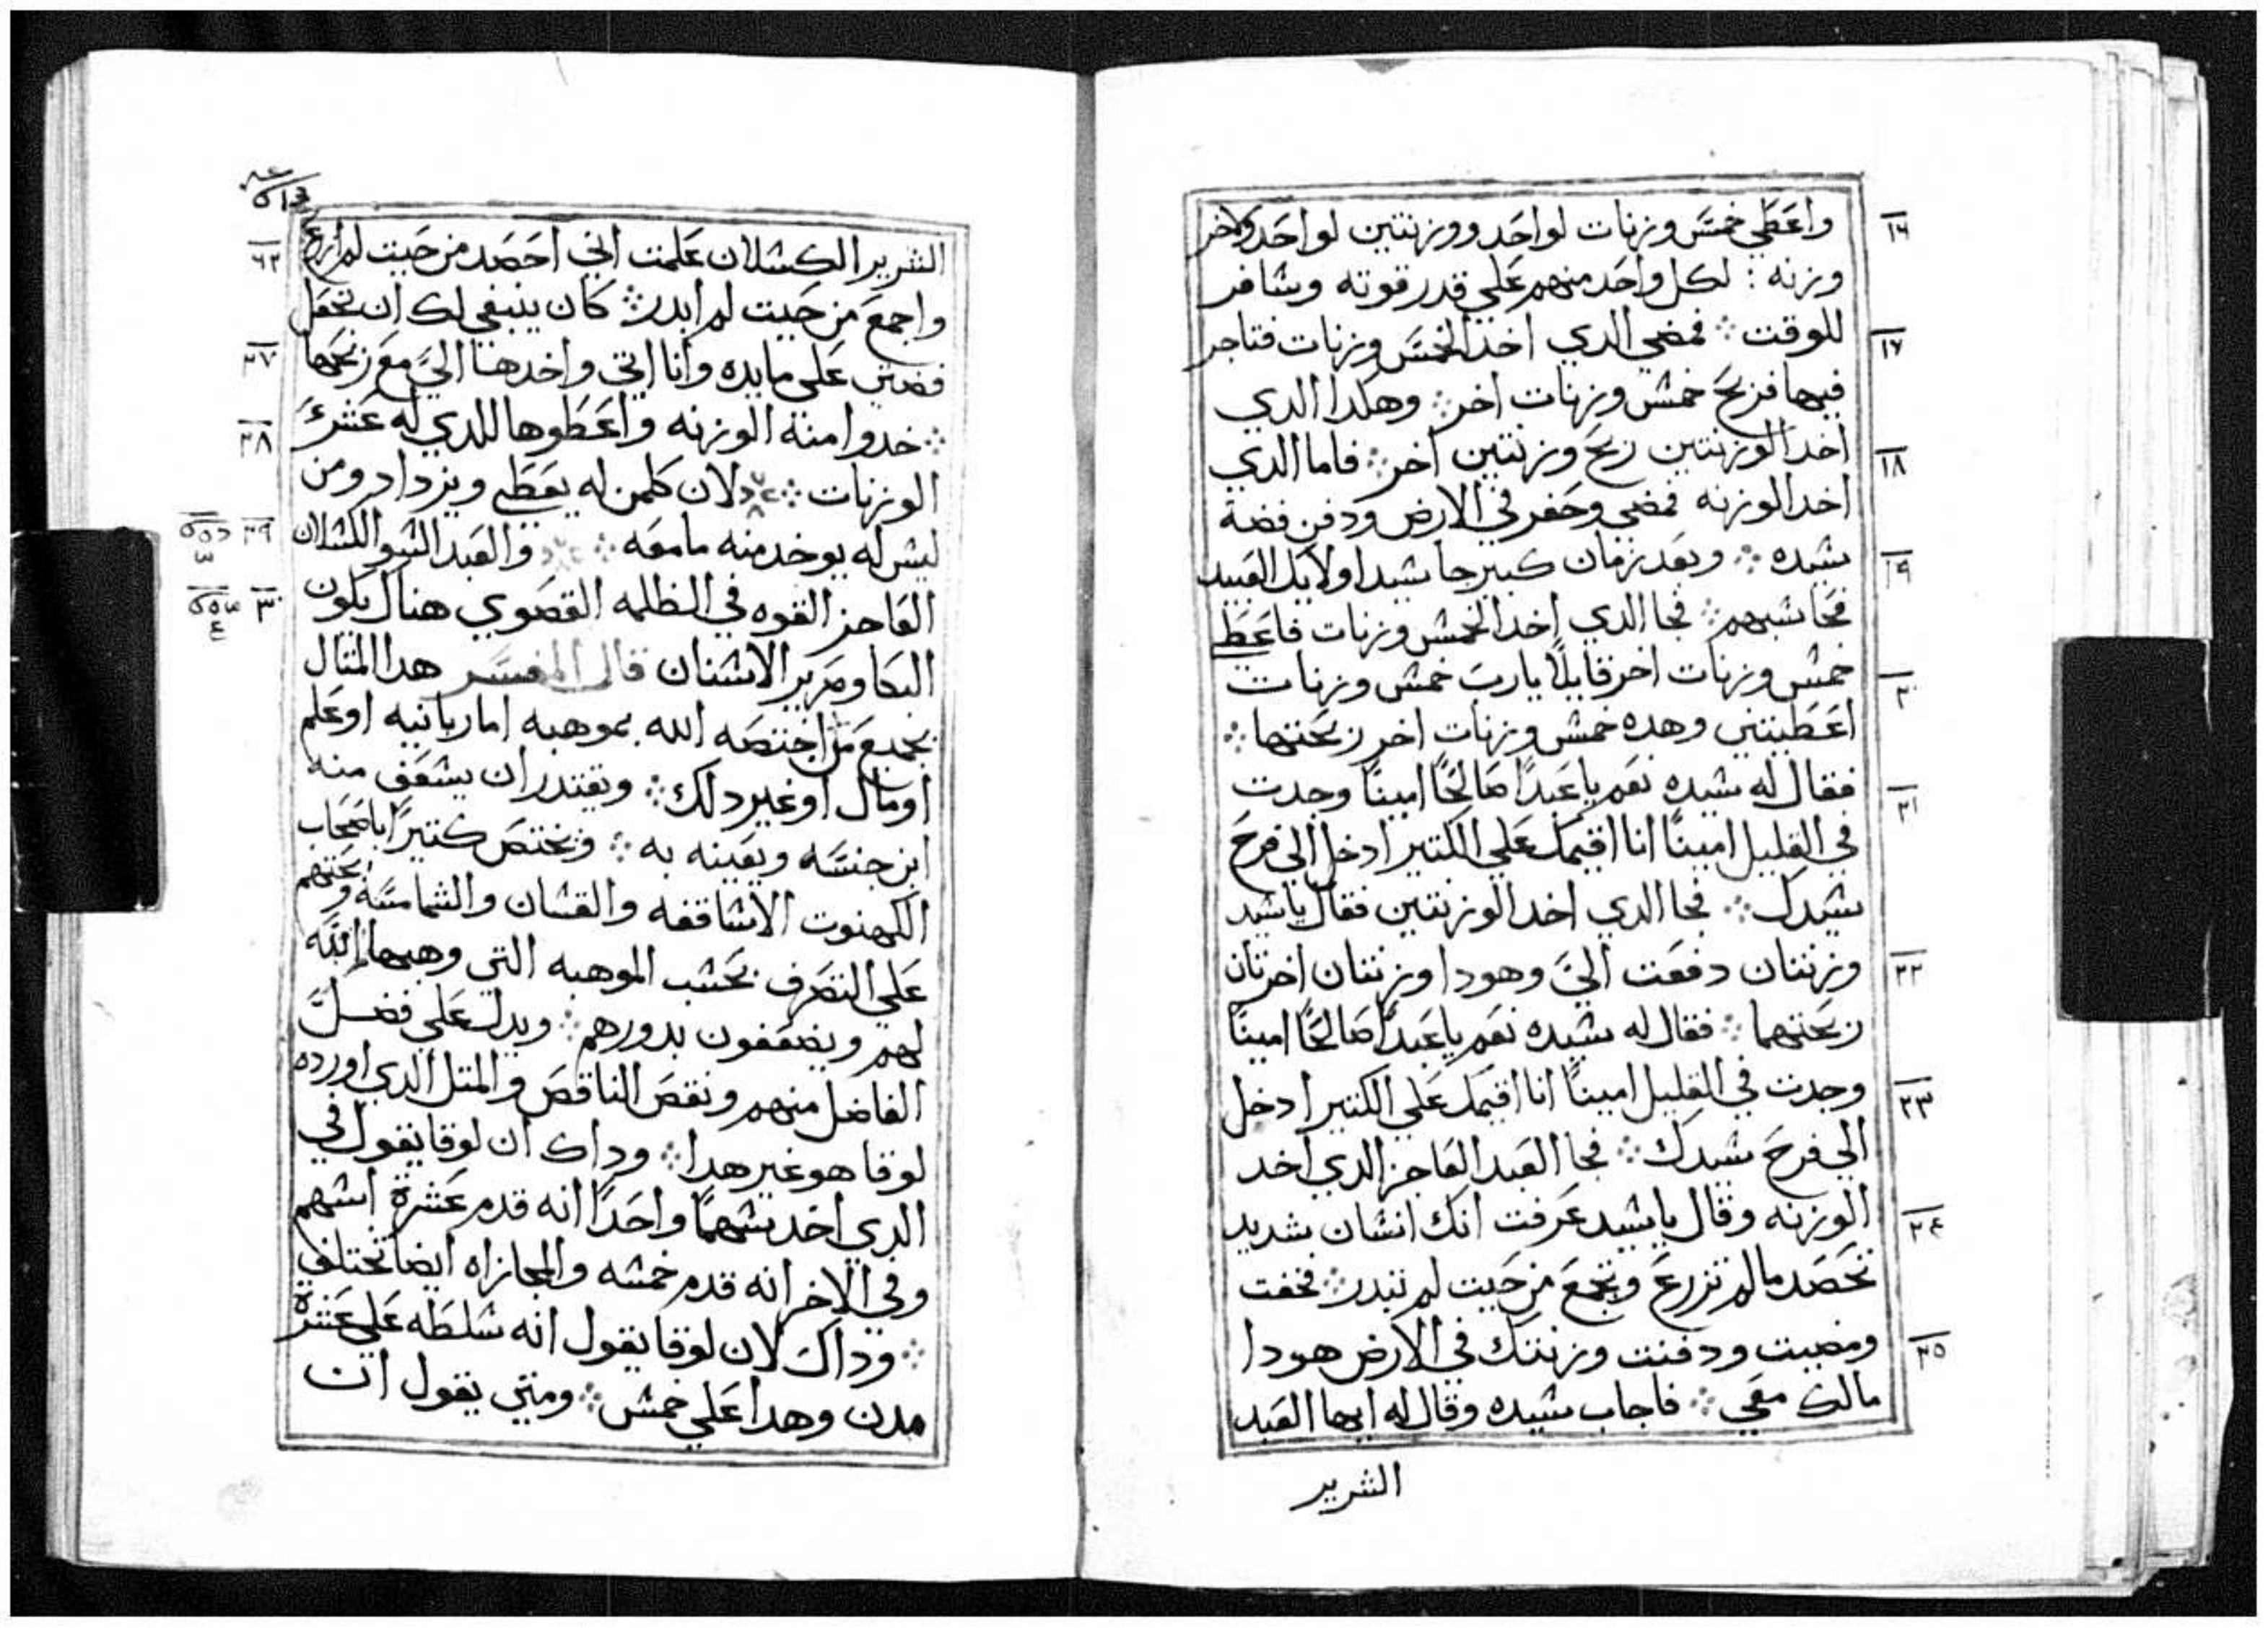 واعطي خمس وزنات لواحد ووزنتين لواحد ولاخر
وزنه : لكل واحد منهم علي قدر قوته وسافر
للوقت ፨ فمضي الدي اخد الخمس وزنات فتاجر
فيها فربح خمس وزنات اخر ፨ وهكدا الدي
اخد الوزنتين ربح وزنتين اخر ፨ فاما الدي
اخد الوزنه فمضي وحفر في الارض ودفن فضة
سيده ፨ وبعد زمان كبير جا سيد اولايك العبيد
فحاسبهم ፨ فجا الدي اخد الخمس وزنات فاعطي
خمس وزنات اخر قايلًا يارب خمس وزنات
اعطيتني وهده خمس وزنات اخر ربحتها ፨
فقال له سيده نعم ياعبدًا صالحًا امينًا وجدت
في القليل امينًا انا اقيمك علي الكتير ادخل الي فرح
سيدك ፨ فجا الدي اخد الوزنتين فقال ياسيد
وزنتان دفعت اليَّ وهودا وزنتان اخرتان
ربحتهما ፨ فقال له سيده نعم ياعبدًا صالحًا امينًا
وجدت في القليل امينًا انا اقيمك علي الكتير ادخل
الي فرح سيدك ፨ فجا العبد العاجز الدي اخد
الوزنه وقال ياسيد عرفت انك انسان شديد
تحصد مالم تزرع وتجمع من حيت لم تبدر ፨ فخفت
ومضيت ودفنت وزنتك في الارض هودا
مالك معي ፨ فاجاب سيده وقال له ايها العبد
الشرير
١٦
١٧
١٨
١٩
٢٠
٢١
٢٢
٢٣
٢٤
٢٥
الشرير الكسلان علمت اني احصد من حيت لم ازرع
واجمع من حيت لم ابدر ፨ كان ينبغي لك ان تجعل
فضتي على مايده وانا اتي واخدها اليَّ مع ربحها
፨ خدوا منه الوزنه واعطوها للدي له عشرة
الوزنات ፨ لان كلمن له يعطي ويزداد ومن
ليس له يوخد منه مامعه ፨ والعبد السو الكسلان
العاجز القوه في الظلمه القصوي هناك يكون
البكا وصرير الاسنان قال المفسر هدا المتال
بجميع من اختصه الله بموهبه اما ربانيه او علم
اومال اوغير دلك ፨ ويقتدر ان يسعف منه
ابن جنسه ويعينه به ፨ ويختص كتيرًا باصحاب
الكهنوت الاساقفه والقسان والشمامسه ويحتهم
علي التصرف بحسب الموهبه التي وهبها الله
لهم ويضعفون بدورهم ፨ ويدل علي فضل
الفاضل منهم ونقص الناقص والمتل الدي اورده
لوقا هو غير هدا ፨ وداك ان لوقا يقول في
الدي اخد سهمًا واحدًا انه قدم عشرة اسهم
وفي الاخر انه قدم خمسه والمجازاه ايضا تختلف
፨ وداك لان لوقا يقول انه سلطه علي عشرة
مدن وهدا علي خمس ፨ ومتي يقول ان
٢٧
٢٨
٢٩
٣٠